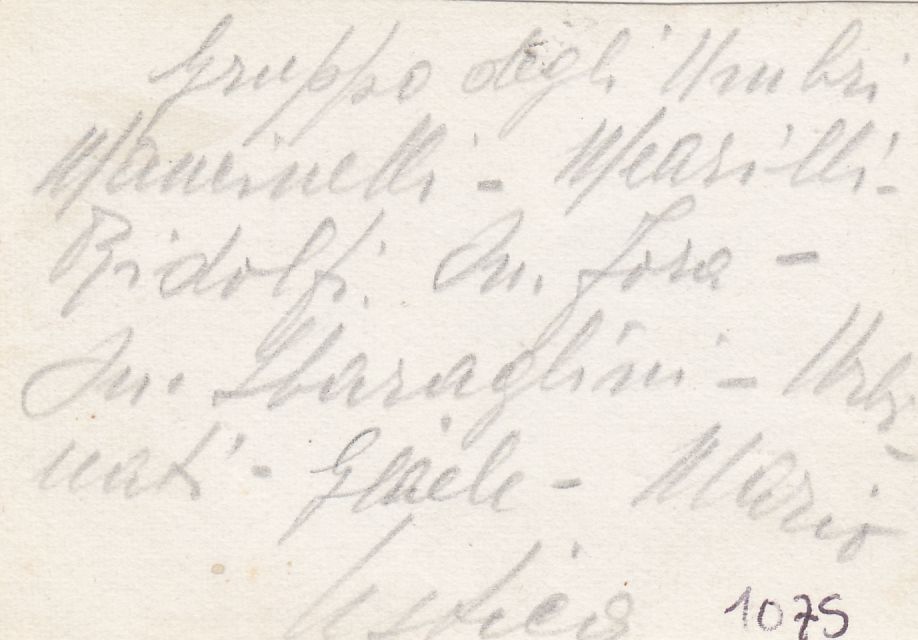 Gruppo degli Umbri
Mancinelli - Mearilli -
Ridolfi. On. Fora -
On. Sbaraglini - Urbi-
nati - Mario
Ustica 1075